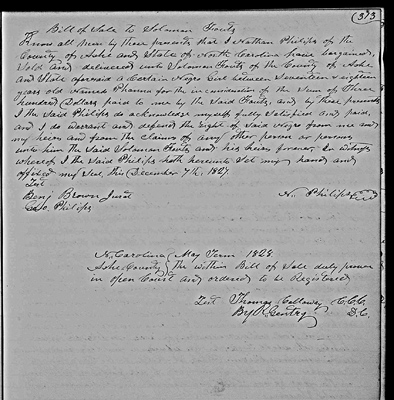 (373
Bill of Sale to Solaman Fouts
Know all Men by these presents that I Nathan Philips of the
County of Ashe and State of North Carolina have bargained,
Sold and delivered unto Solaman Fouts of the County of Ashe
and State aforesaid a Certain Negro between Seventeen & eighteen
years old Named for the in consideration of the Sum of Three
hundred Dollars paid to me by the Said Fouts, and by these presents
I the Said Philips do acknowledge myself fully Satisfied and paid,
and I do warant and defend the right of Said Negro from me and
my heirs and from the claims of any other person or persons
unto him the Said Solaman Fouts and his heirs forever In Witness
whereof I the Said Philips hath hereunto Set my hand and
affixed my Seal, this December 7th, 1827.
Test
Benj Brown Jurat N. Philips Seal
Philips
N. Carolina May Term 1828.
Ashe County The within Bill of Sale duly proven
in open Court and ordered to be Registered
Test Thomas Calloway C.C.C.
By Gentry D.C.